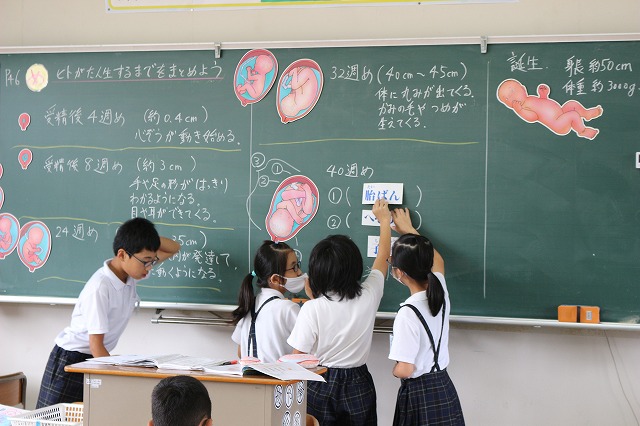 P46
ヒトがたん生するまでをまとめよう
受精後4週め (約0.4cm)
心ぞうが動き始める。
受精後8週め (約3cm)
手や足の形がはっきり
わかるようになる。
目や耳ができてくる。
24週め
5cm)
が発達して、
動くようになる。
32週め (40cm～45cm)
体に丸みが出てくる。
かみの毛やつめが
生えてくる。
40週め
① ( 胎ばん )
② ( )
誕生
身長 約50cm
体重 約3000g
①
②